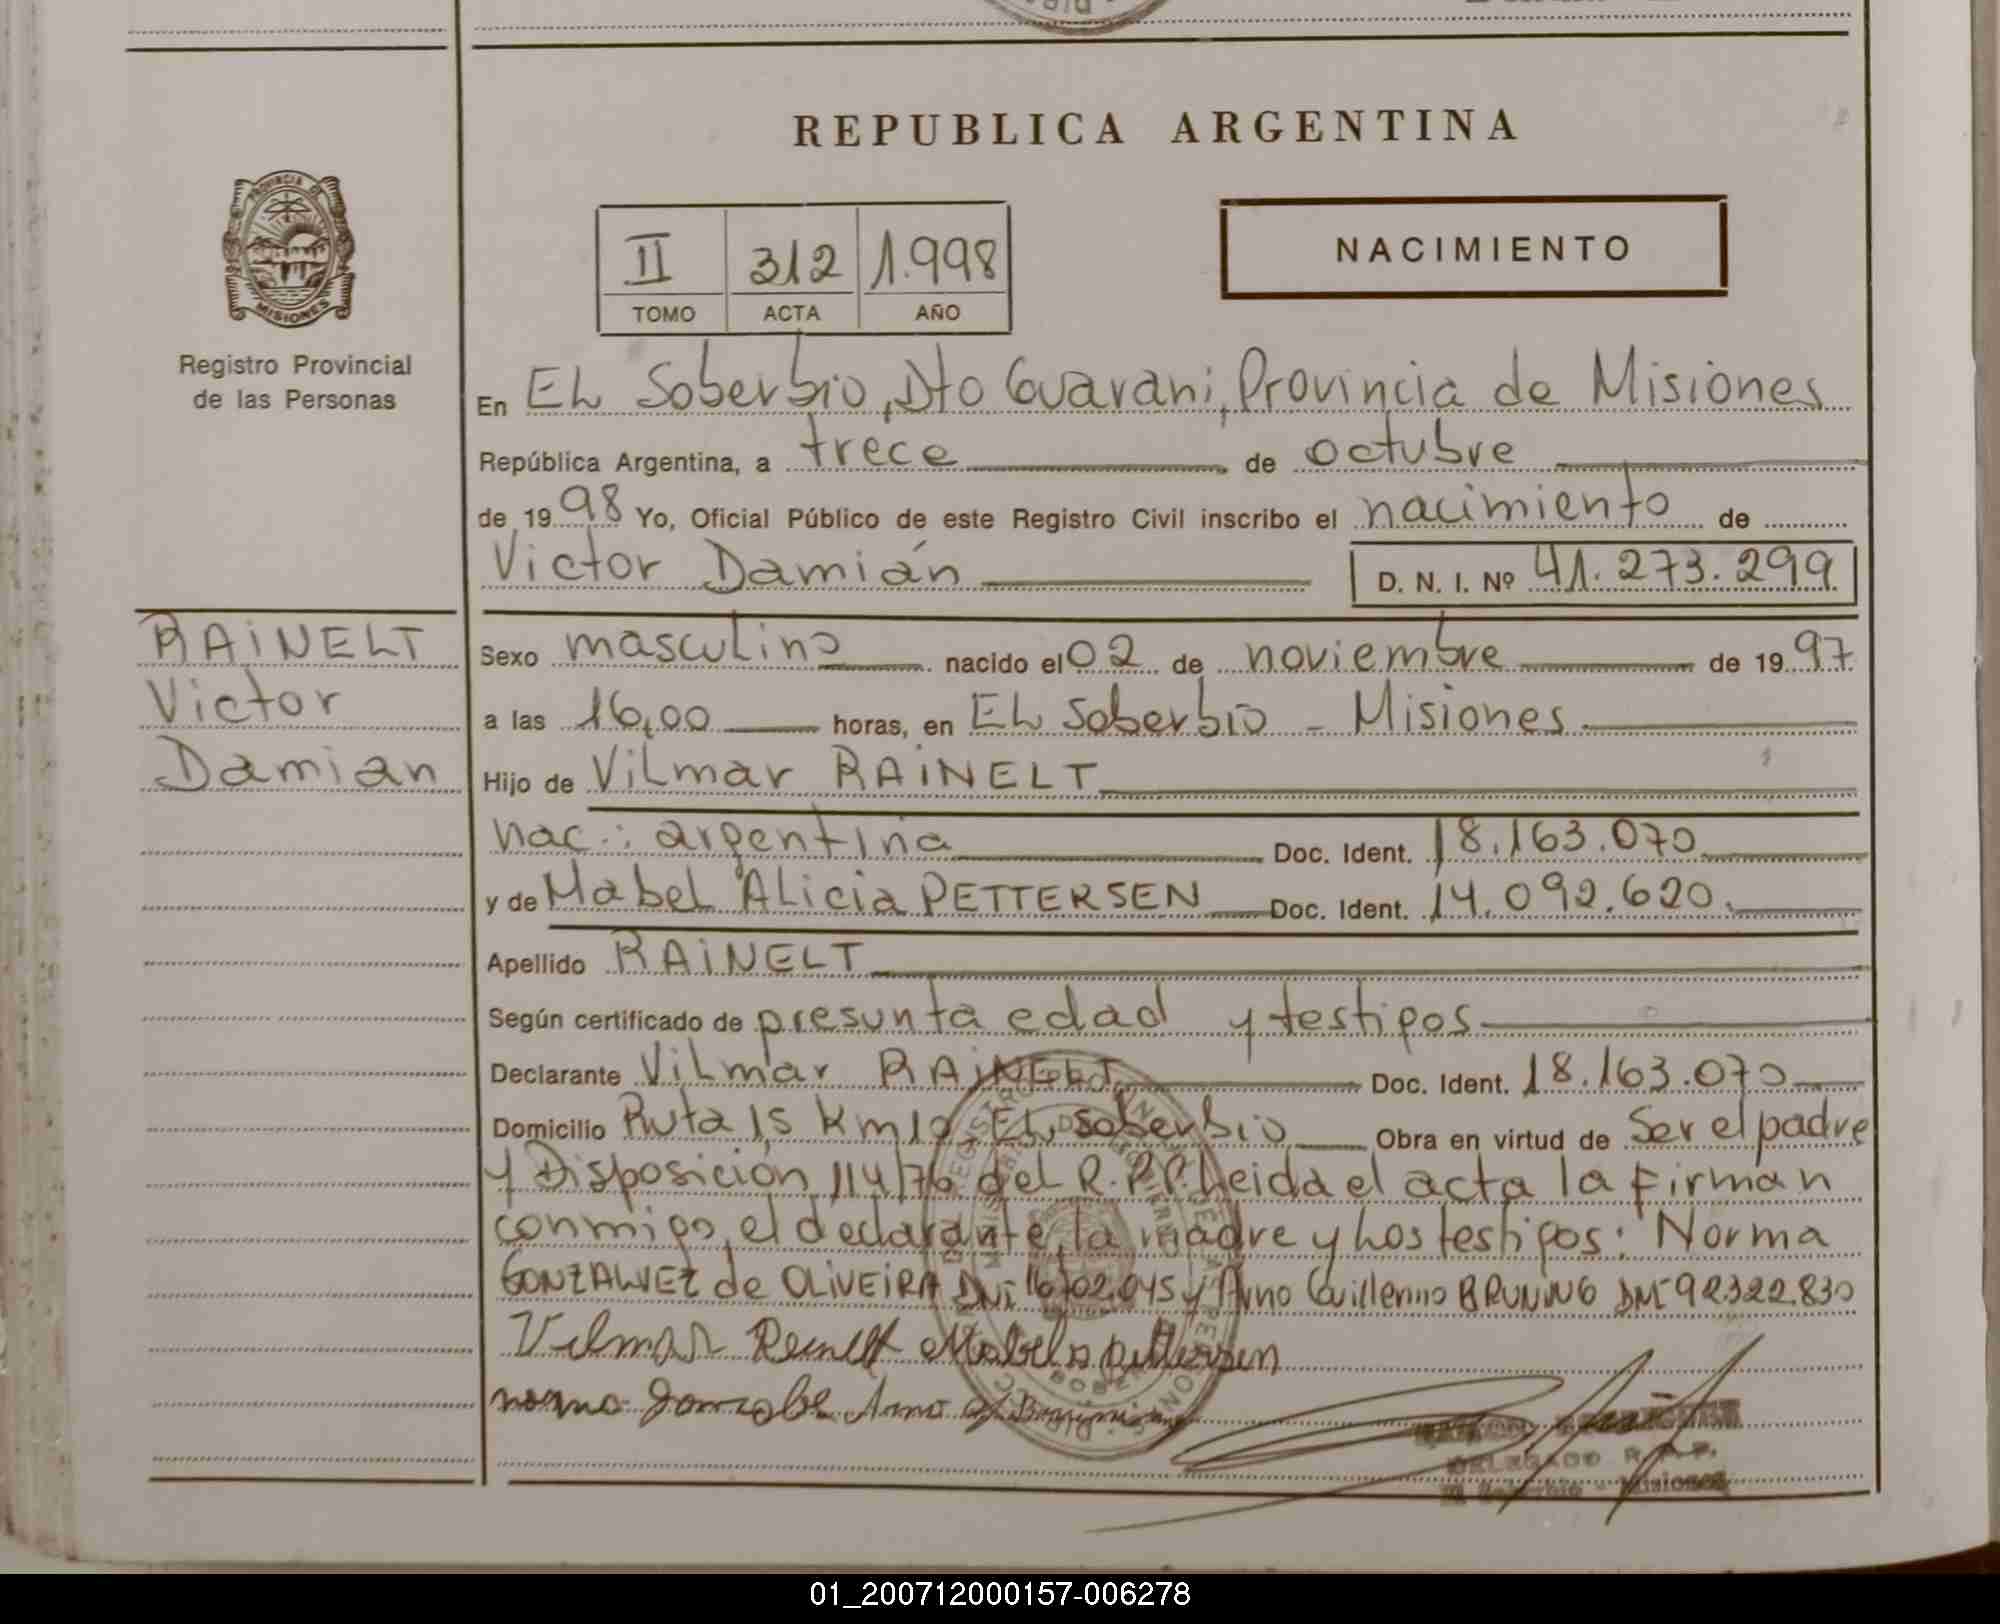 REPUBLICA ARGENTINA
PROVINCIA DE
MISIONES
Registro Provincial
de las Personas
II 312 1.998
TOMO ACTA AÑO
NACIMIENTO
En EL Soberbio, Dto Guarani, Provincia de Misiones
República Argentina, a trece de octubre
de 1998 Yo, Oficial Público de este Registro Civil inscribo el nacimiento de
Victor Damián D. N. I. Nº 41.273.299
RAiNELT
Victor
Damian
Sexo masculino nacido el 02 de noviembre de 1997
a las 16,00 horas, en EL Soberbio - Misiones
Hijo de Vilmar RAiNELT
nac.: argentina Doc. Ident. 18.163.070
y de Mabel ALicia PETTERSEN Doc. Ident. 14.092.620.
Apellido RAiNELT
Según certificado de presunta edad y testigos
Declarante ViLmar RAiNELT Doc. Ident. 18.163.070
Domicilio Ruta 15 Km 10, EL Soberbio Obra en virtud de Ser el padre
y Disposición 114/76 del R.P.P. Leida el acta la Firman
conmigo, el declarante, la madre y Los testigos: Norma
GONZALVEZ de OLiVEiRA DNi 16702.045 y Arno Guillermo BRUNiNG DNI 92322.830
Vilmar Reinelt Mabel A Pettersen
norma Gonzalbe Arno G Bruning
DELEGADO R. P. P.
El Soberbio - Misiones
01_200712000157-006278